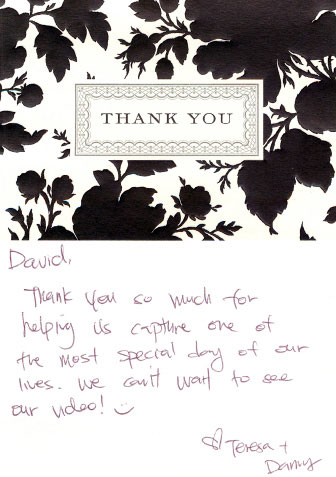 THANK YOU
David,
Thank you so much for
helping us capture one of
the most special day of our
lives. We can't wait to see
our video! :)
♡ Teresa +
Danny